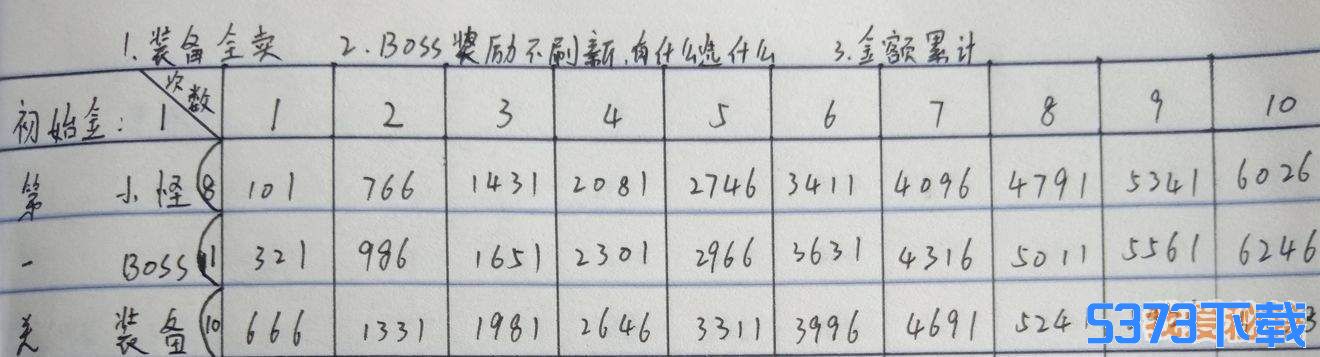 1.装备全卖 2.BOSS奖励不刷新,有什么选什么 3.金额累计
初始金:1 次数 1 2 3 4 5 6 7 8 9 10
第 小怪(8 101 766 1431 2081 2746 3411 4096 4791 5341 6026
一 BOSS(1 321 986 1651 2301 2966 3631 4316 5011 5561 6246
关 装备(10 666 1331 1981 2646 3311 3996 4691 524
5373下载